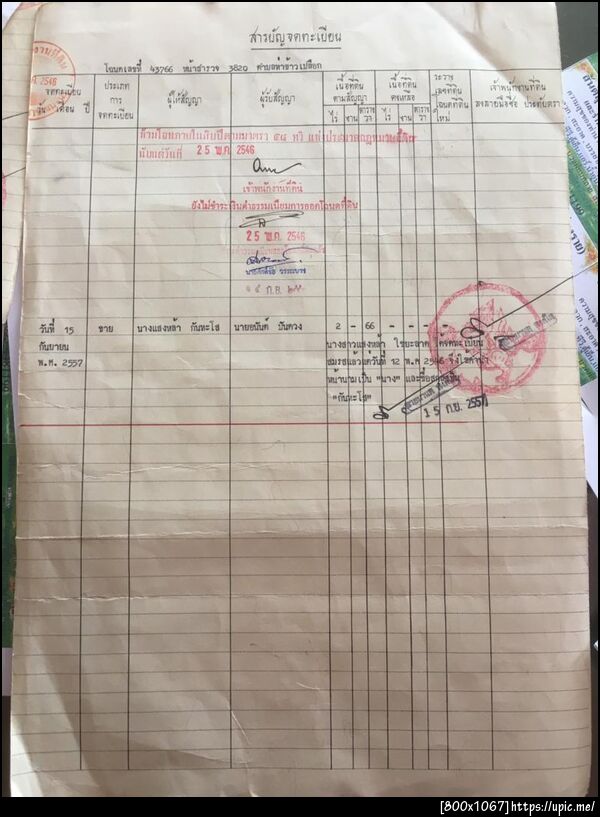 สารบัญจดทะเบียน
โฉนดเลขที่ 43766 หน้าสำรวจ 3820 ตำบลท่าข้าวเปลือก
จดทะเบียน วัน เดือน ปี
ประเภทการจดทะเบียน
ผู้ให้สัญญา
ผู้รับสัญญา
เนื้อที่ดินตามสัญญา
ไร่ งาน ตารางวา
เนื้อที่ดินคงเหลือ
ไร่ งาน ตารางวา
ระวาง เลขที่ดิน โฉนดที่ดินใหม่
เจ้าพนักงานที่ดิน ลงลายมือชื่อ ประทับตรา
ห้ามโอนภายในสิบปีตามมาตรา ๕๘ ทวิ แห่งประมวลกฎหมายที่ดิน
นับแต่วันที่ 25 พ.ค. 2546
เจ้าพนักงานที่ดิน
ยังไม่ชำระเงินค่าธรรมเนียมการออกโฉนดที่ดิน
25 พ.ค. 2546
๑๕ ก.ย. ๒๕
วันที่ 15 กันยายน พ.ศ. 2557
ขาย
นางแสงหล้า กันทะโส
นายอนันต์ ปันควง
2 - 66 - - -
นางสาวแสงหล้า ไชยะลาด ได้จดทะเบียน
สมรสแล้วแต่วันที่ 12 พ.ค 2546 จึงใช้คำนำ
หน้านามเป็น "นาง" และชื่อสกุลเป็น
"กันทะโส"
15 ก.ย. 2557
[800x1067]https://upic.me/